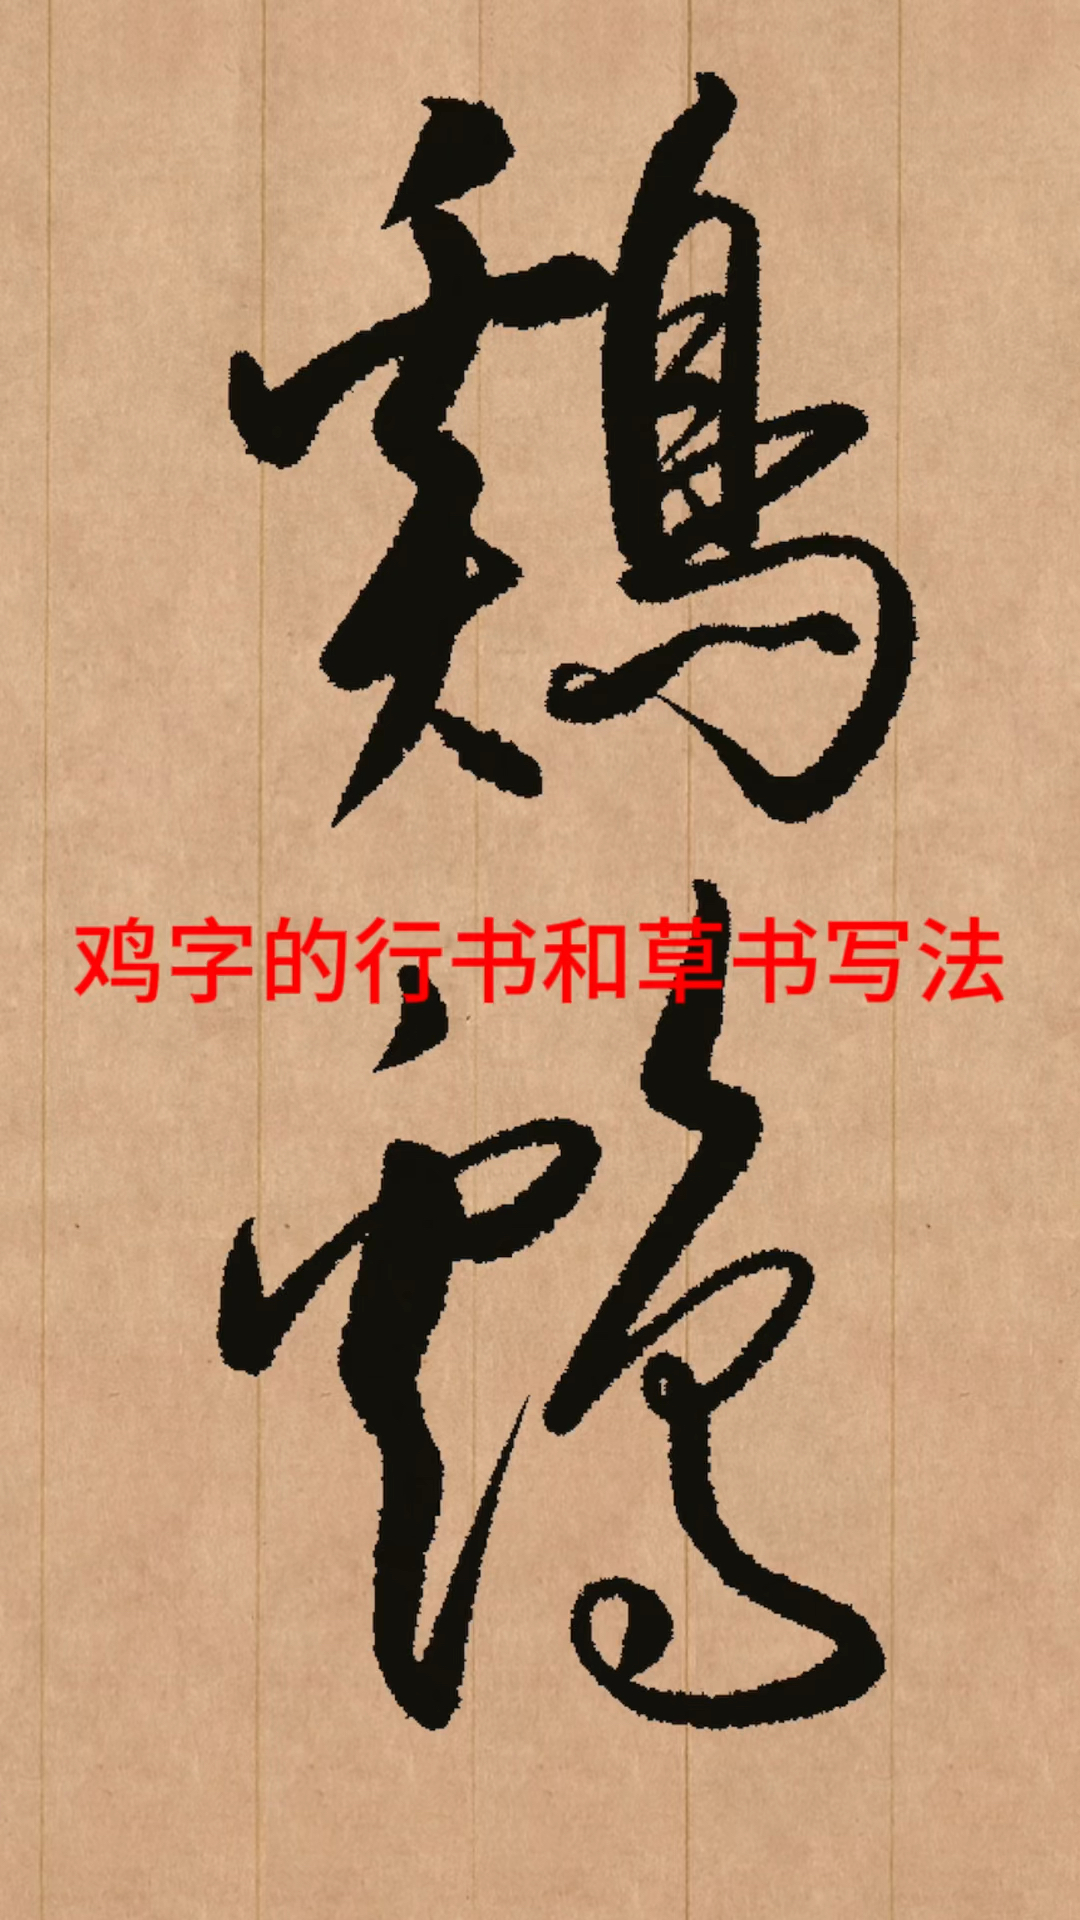 鷄
鸡字的行书和草书写法
鷄